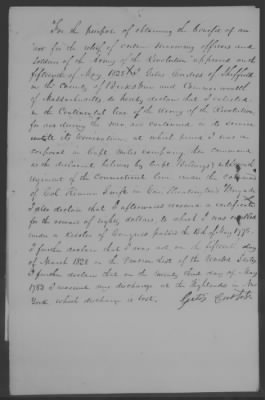 For the purpose of obtaining the benefit of an
"act for the relief of certain surviving officers and
Soldiers of the Army of the Revolution" approved on the
fifteenth of May 1828 I Gates of Sheffield
in the County of Berkshire and Commonwealth
of Massachusetts do hereby declare that I enlisted
in the Continental line of the Army of the Revolution
for and during the war and continued in its service
until its termination, at which period I was a
corporal in Capt company then commanded
as the declarant believes by Capt in the
regiment of the Connecticut line under the command
of Col Heman Swift in Gen Huntington's Brigade
I also declare that I afterwards received a certificate
for the reward of eighty dollars, to which I was entitled
under a Resolve of Congress passed the 15th of May 1778.
I further declare that I was not on the fifteenth day
of March 1828 on the Pension List of the United States
I further declare that on the twenty third day of May
1783 I received my discharge at the Highlands in New
York which discharge is lost.
Gates